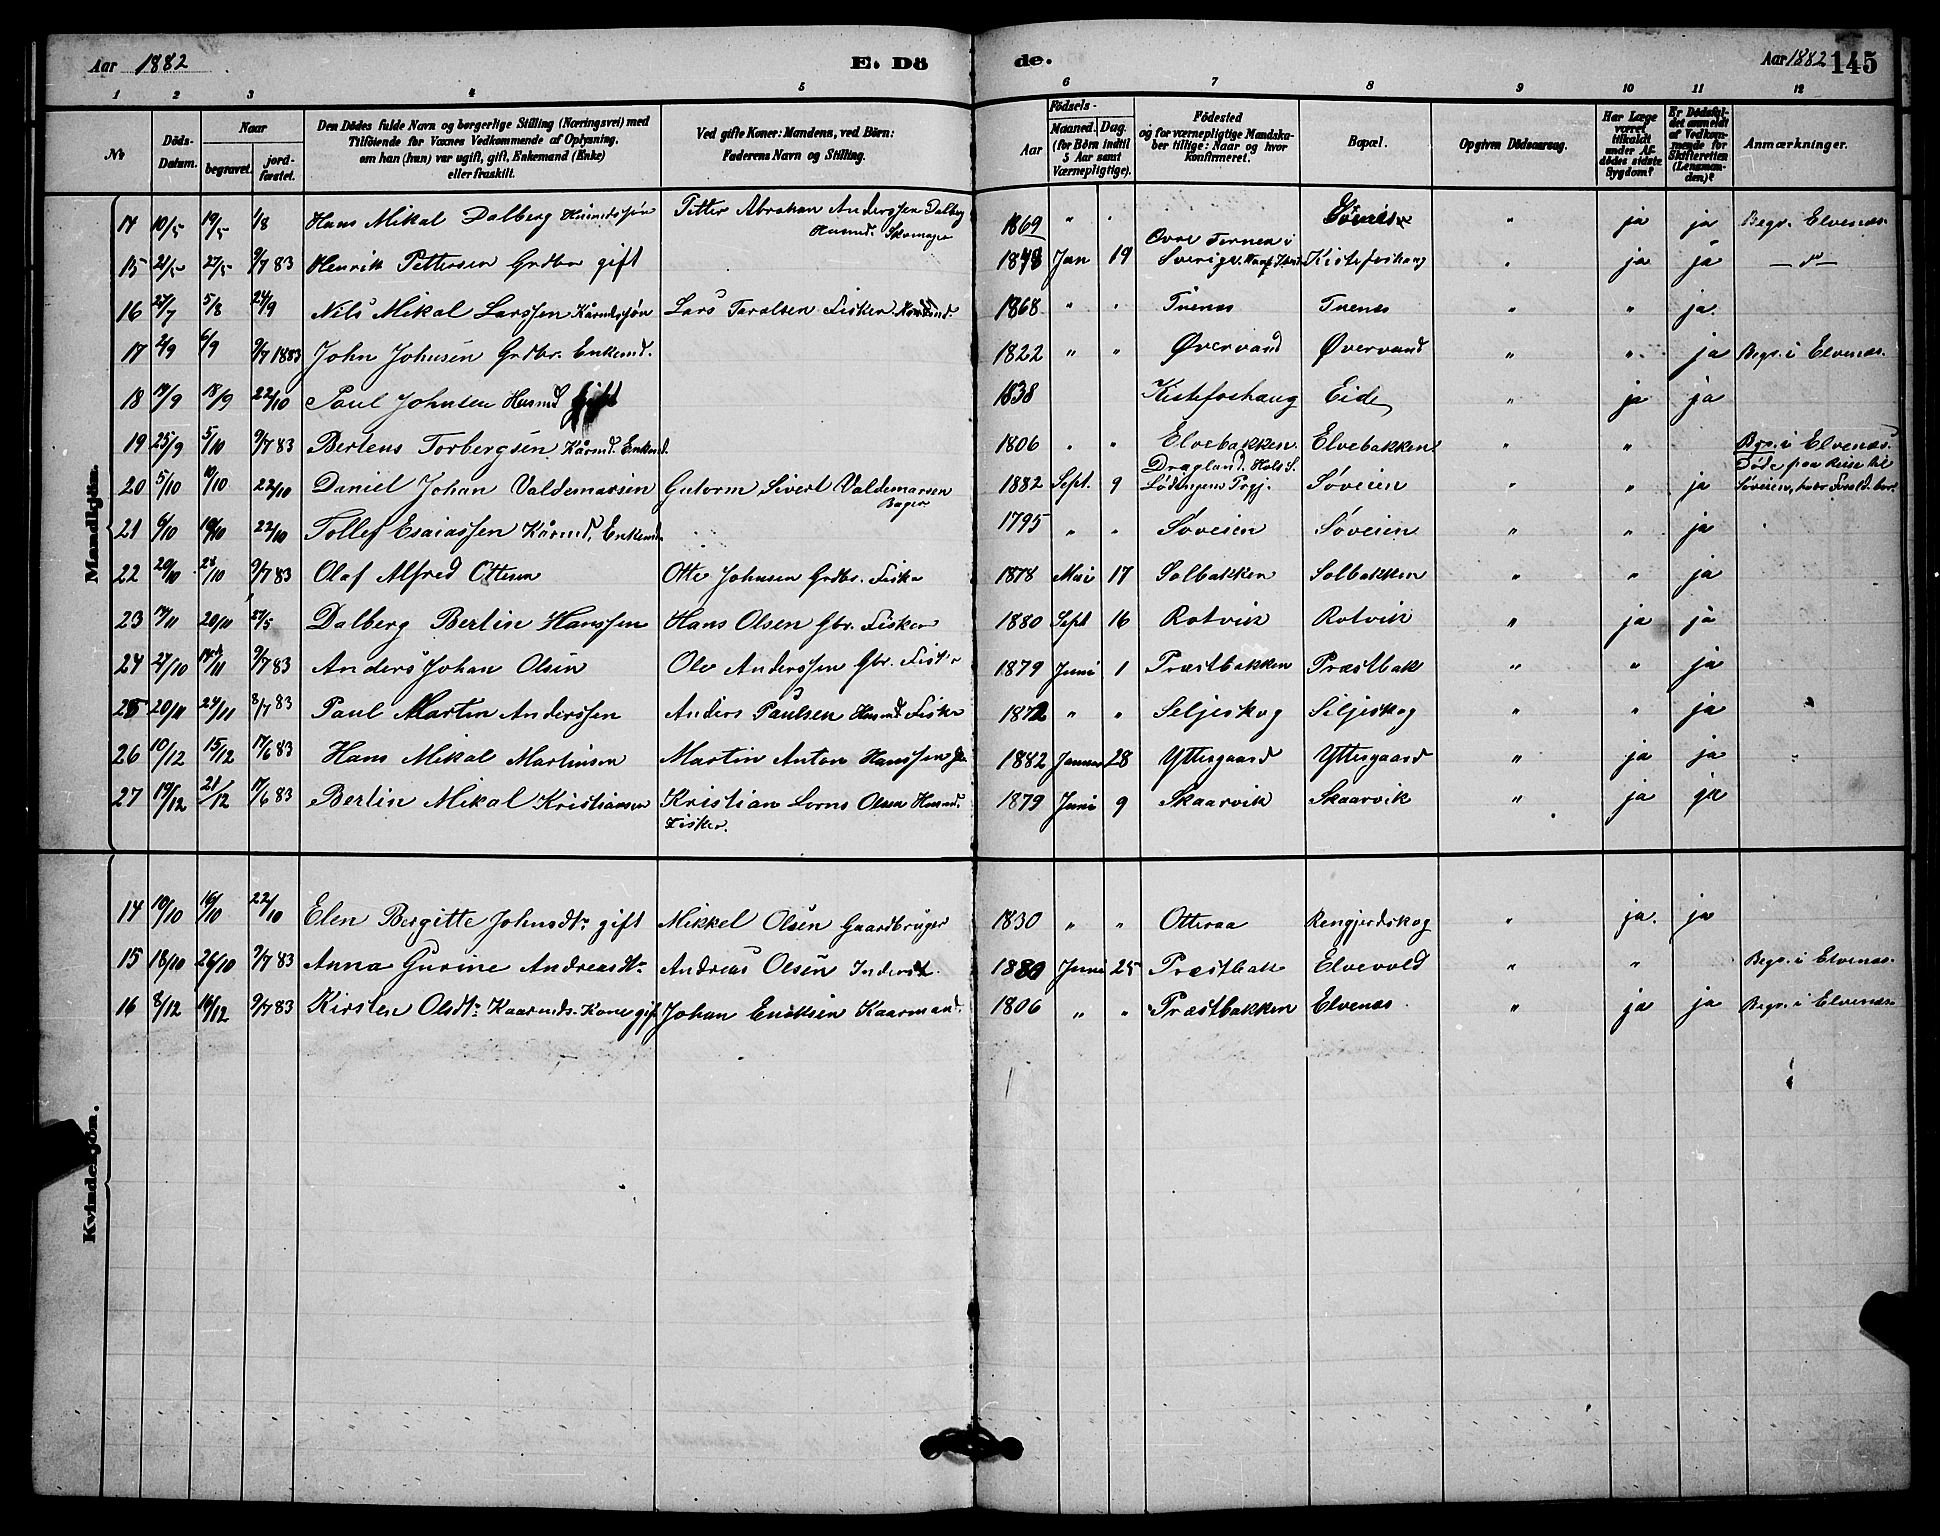 Aar 1882 E. Dö de. Aar 1882 145
1 2 3 4 5 6 7 8 9 10 11 12
No Döds-Datum. Naar begravet. jord-fæstet. Den Dödes fulde Navn og borgerlige Stilling (Næringsvei) med Tilföiende for Voxnes Vedkommende af Oplysning, om han (hun) var ugift, gift, Enkemand (Enke) eller fraskilt. Ved gifte Koner: Mandens, ved Börn: Faderens Navn og Stilling. Födsels- Aar Maaned. Dag. (for Börn indtil 5 Aar samt Værnepligtige). Födested og for værnepligtige Mandska-ber tillige: Naar og hvor konfirmeret. Bopæl. Opgiven Dödsaarsag. Har Læge været tilkaldt under Af-dödes sidste Sygdom? Er Dödsfal-det anmeldt af Vedkom-mende for Skifteretten (Lensman-den)? Anmærkninger.
Mandkjön.
14 10/5 19/5 1/8 Hans Mikal Dalberg Husmdssøn Petter Abraham Anderssen Dalberg Husmd. Skomager 1869 " " ja ja Begr. Elvenæs
15 21/5 27/5 9/7 83 Henrik Pettersen Grdbr gift 1848 Jan 19 Øvre Tornea i Sverige Kistefoshaug " ja ja — do —
16 27/7 5/8 24/9 Nils Mikal Larssen Kårmdssøn Lars Taralsen Fisker 1868 " " Tuenes Tuenes " " ja
17 2/9 6/9 9/7 1883 John Johnsen Grdbr. Enkemd. 1822 " " Øvervand Øvervand " " ja Begr. i Elvenæs
18 14/9 18/9 22/10 Paul Johnsen Husmd gift 1838 Kistefoshaug Eide " ja ja
19 25/9 5/10 9/7 83 Berteus Torbergsen Kårmd. Enkemd. 1806 " " Elvebakken Elvebakken " " Begr. i Elvenæs
20 5/10 10/10 22/10 Daniel Johan Valdemarsen Gutorm Sivert Valdemarsen Bager 1882 Sept. 9 Dragland. Hols S. Lødingens Prgj. Søveien " " ja Døde paa Reise til Søveien, hvor Forald. bor.
21 6/10 10/10 22/10 Tollef Esaiassen Kårmd, Enkemd. 1795 " " Søveien Søveien " " ja
22 20/10 28/10 9/7 83 Olaf Alfred Ottesen Otte Johnsen Grdbr. Fisker 1878 Mai 17 Solbakken Solbakken " " ja
23 14/11 20/11 27/5 Dalberg Bertin Hanssen Hans Olsen Gbr. Fisker 1880 Sept 16 Rotvik Rotvik " ja ja
24 27/10 14/11 9/7 83 Anders Johan Olsen Ole Anderssen Gbr. Fisker 1879 Juni 1 Præstbakken Præstbak " " ja
25 20/11 24/11 8/7 83 Paul Martin Anderssen Anders Paulsen Husmd Fisker 1872 " " Seljeskog Seljeskog " " ja
26 10/12 15/12 17/6 83 Hans Mikal Martinsen Martin Anton Hanssen 1882 Januar 28 Yttergaard Yttergaard " ja ja "
27 19/12 21/12 17/6 83 Bertin Mikal Kristiansen Kristian Lorns Olsen Husmd. Fisker. 1879 Juni 9 Skaarvik Skaarvik " ja ja
Kvindekjön.
14 10/10 16/10 22/10 Elen Bergitte Johnsdtr gift Mikkel Olsen Gaardbruger 1830 " " Otteraa Rengjerdskog " ja. ja
15 18/10 26/10 9/7 83 Anna Gurine Andreasdtr Andreas Olsen Inderst. 1880 Juni 25 Præstbak Elvevold " " Begr. i Elvenæs
16 8/12 16/12 9/7 83 Kirsten Olsdtr Kaarmds. Kone gift Johan Eriksen Kaarmand. 1806 " " Præstbakken Elvenæs " ja ja Begr. i Elvenæs